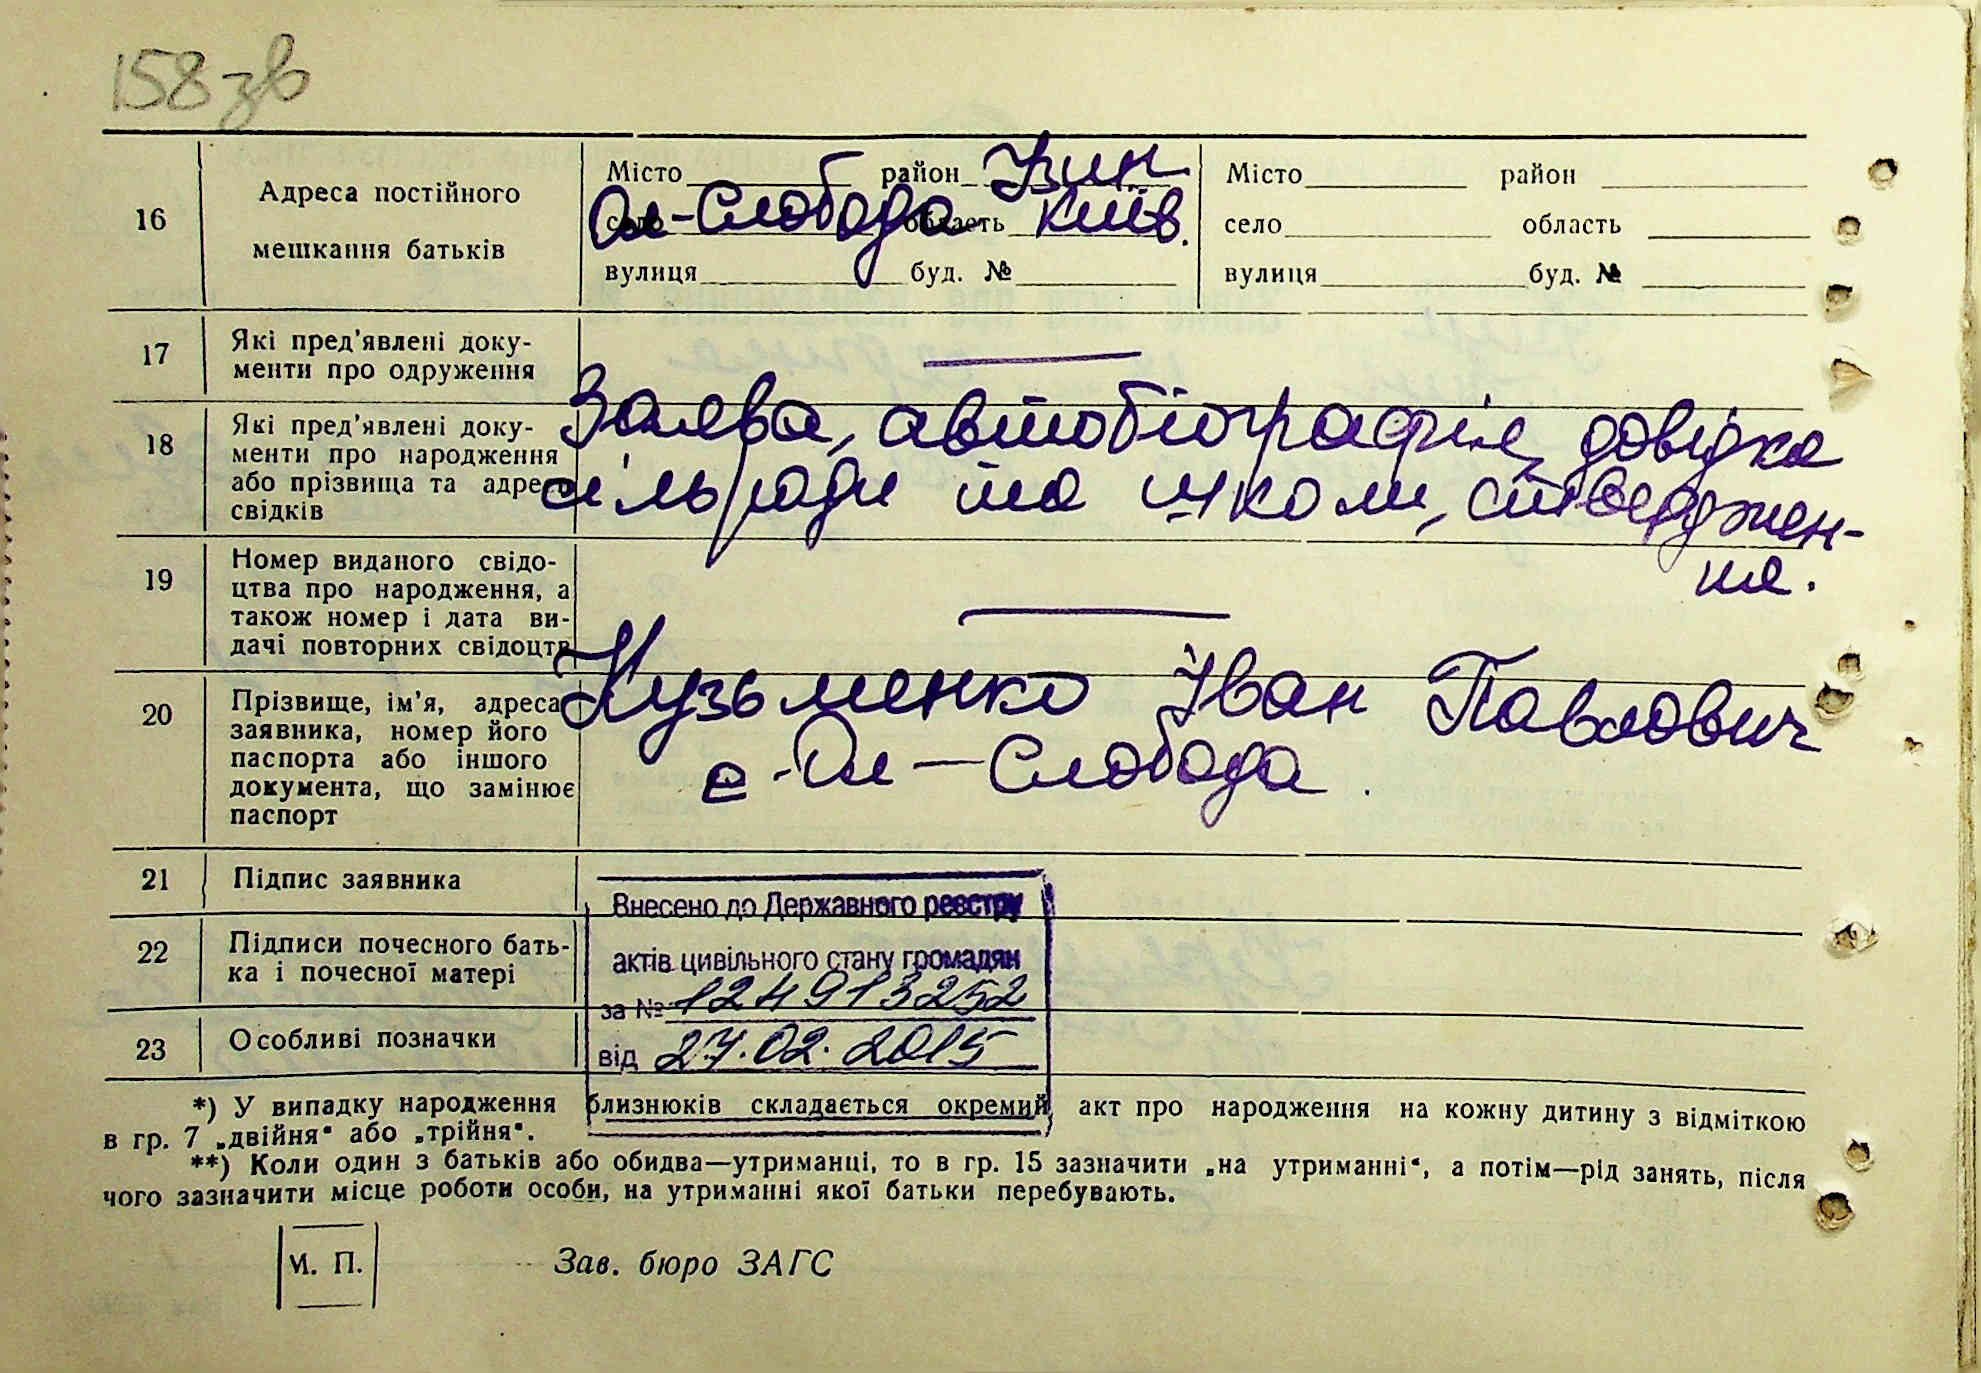 158 зв
16 Адреса постійного мешкання батьків
Місто район Узин
село Ол-Слобода область Київ.
вулиця буд. №
Місто район
село область
вулиця буд. №
17 Які пред'явлені доку-
менти про одруження —
18 Які пред'явлені доку-
менти про народження
або прізвища та адреси
свідків
Заява, автобіографія, довідка
сільради та школи, стверджен-
ня.
19 Номер виданого свідо-
цтва про народження, а
також номер і дата ви-
дачі повторних свідоцтв —
20 Прізвище, ім'я, адреса
заявника, номер його
паспорта або іншого
документа, що замінює
паспорт
Кузьменко Іван Павлович
с. Ол-Слобода.
21 Підпис заявника
22 Підписи почесного бать-
ка і почесної матері
23 Особливі позначки
Внесено до Державного реєстру
актів цивільного стану громадян
за № 124913252
від 27.02.2015
*) У випадку народження близнюків складається окремий акт про народження на кожну дитину з відміткою
в гр. 7 „двійня" або „трійня".
**) Коли один з батьків або обидва—утриманці, то в гр. 15 зазначити „на утриманні", а потім—рід занять, після
чого зазначити місце роботи особи, на утриманні якої батьки перебувають.
М. П. Зав. бюро ЗАГС